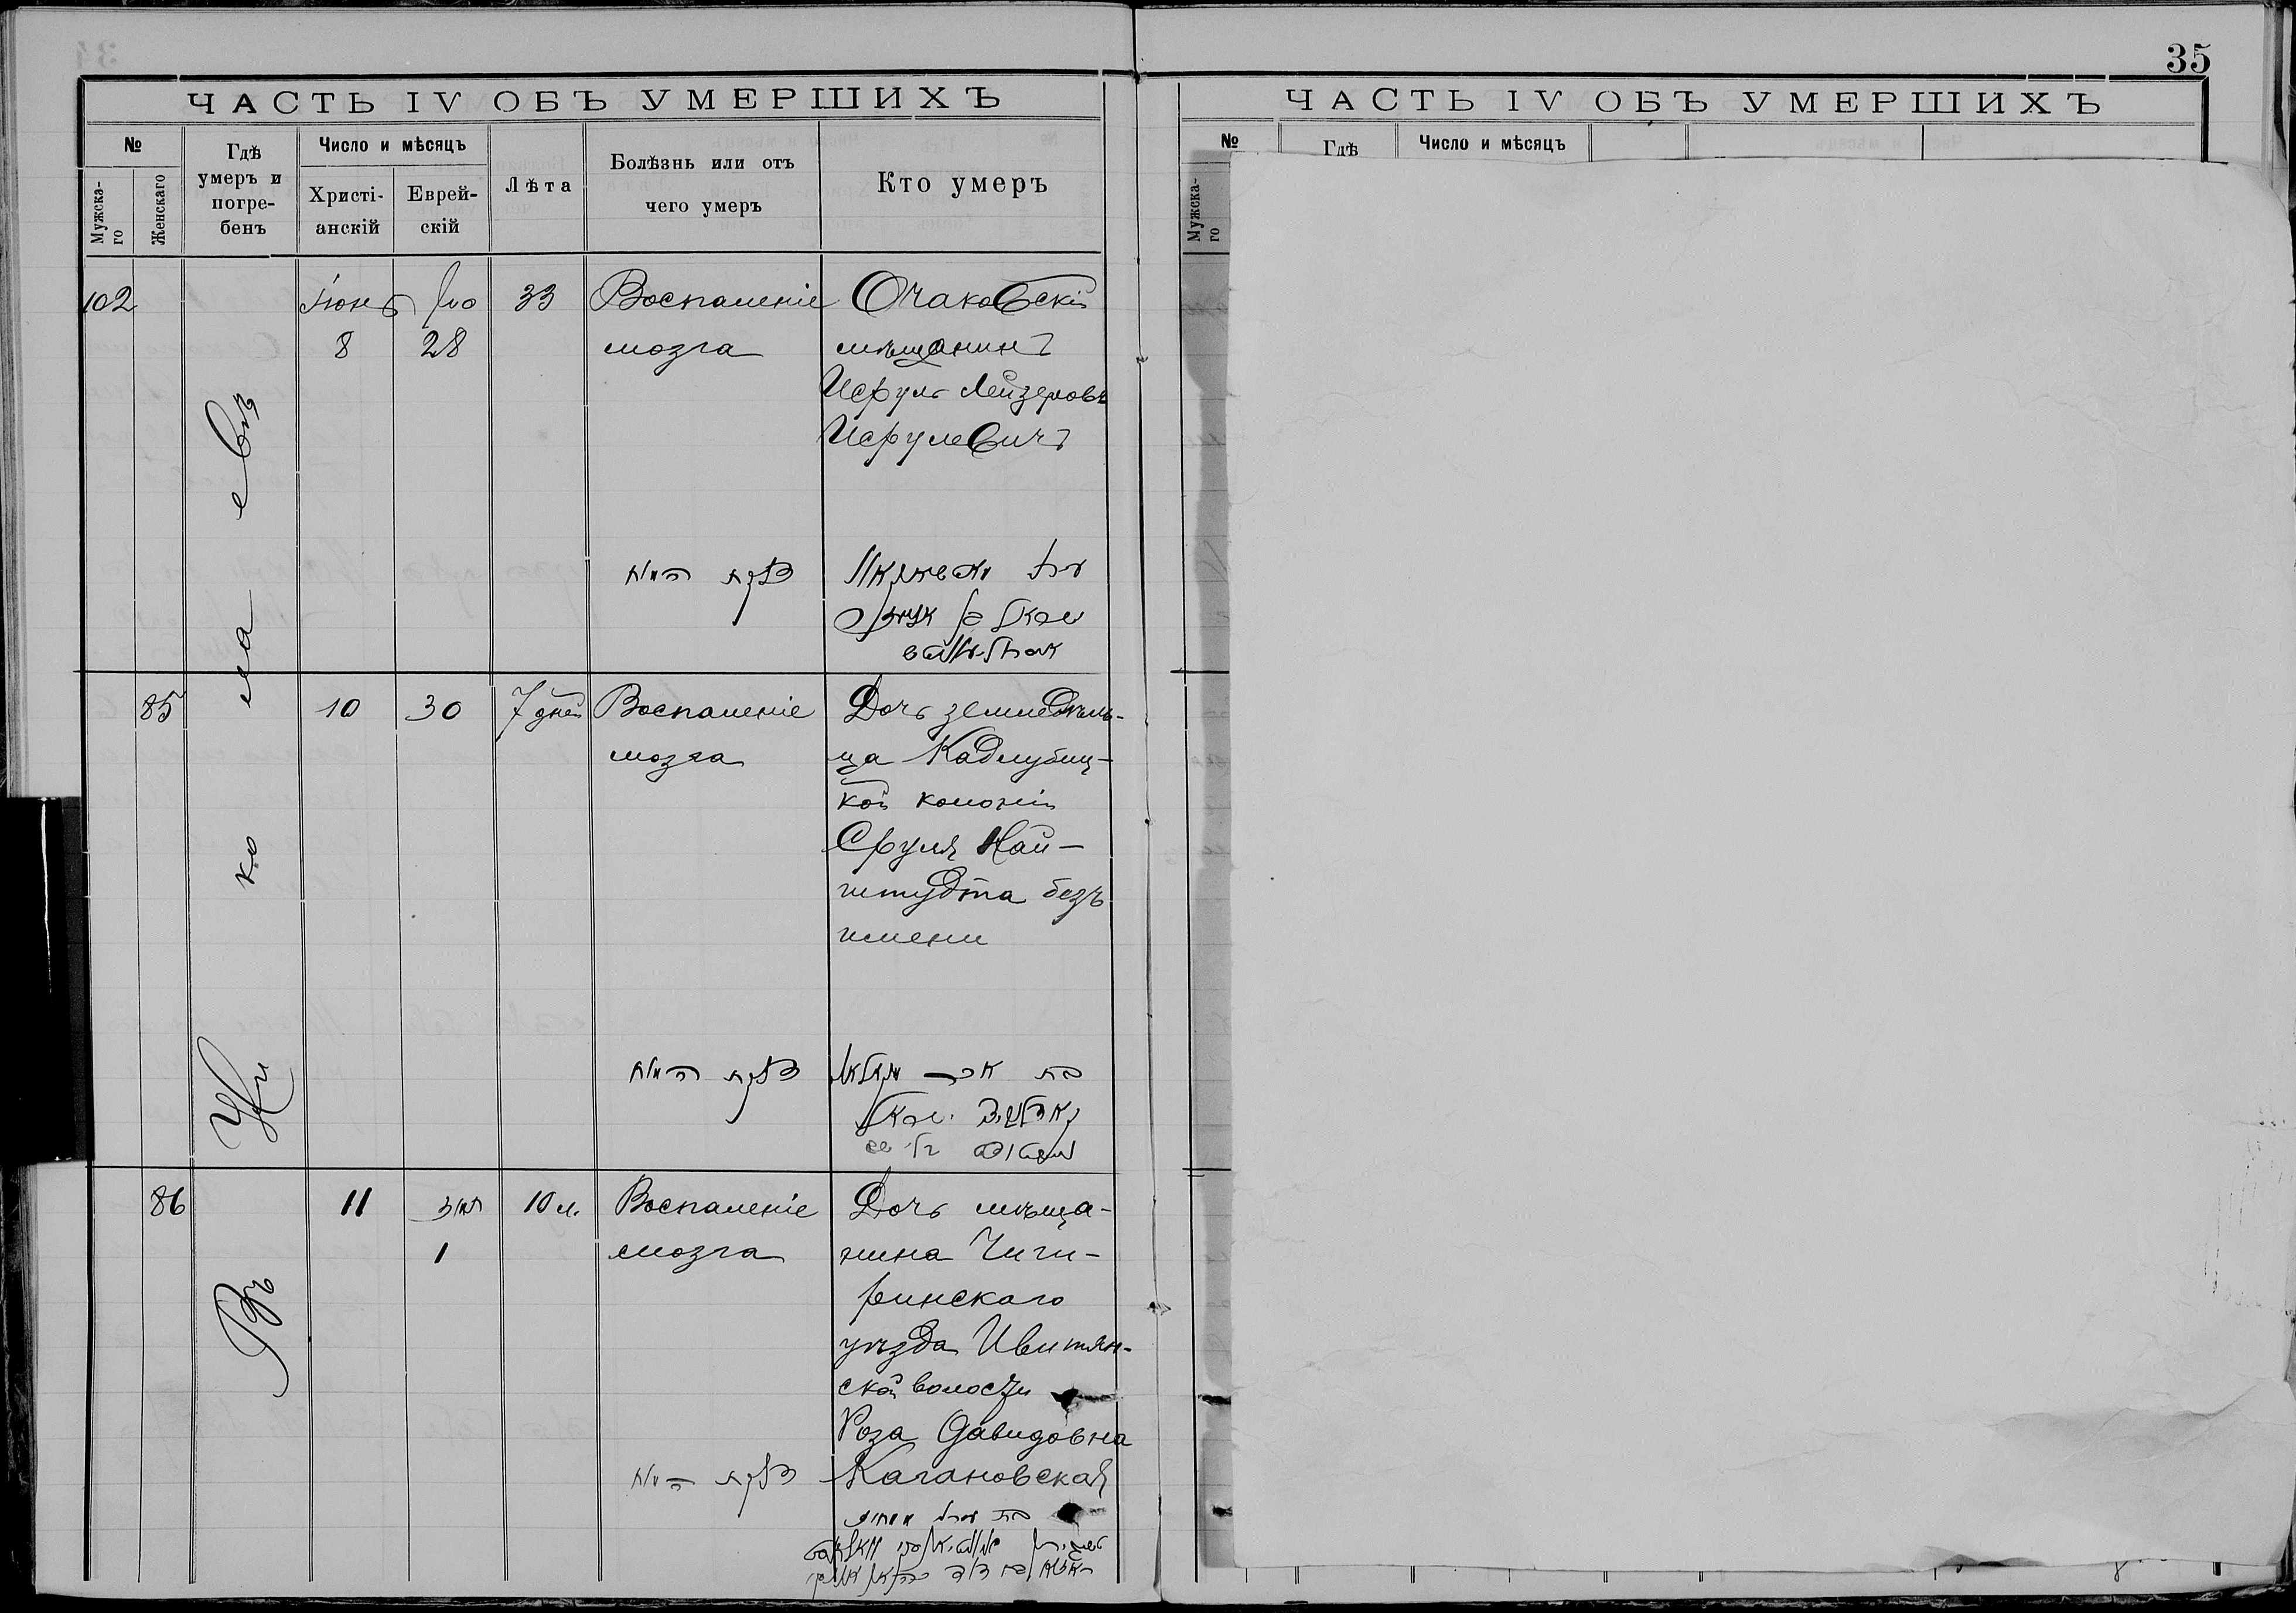 35
ЧАСТЬ IV ОБЪ УМЕРШИХЪ
№
Мужска-
го
Женскаго
Гдѣ
умеръ и
погре-
бенъ
Число и мѣсяцъ
Христі-
анскій
Еврей-
скій
Лѣта
Болѣзнь или отъ
чего умеръ
Кто умеръ
Въ Николаевѣ
102
Іюнь
8
28
33
Воспаленіе
мозга
Очаковскій
мѣщанинъ
Исруль Лейзеровъ
Исрулевичъ
דלקת המוח
85
10
30
7 дней
Воспаленіе
мозга
Дочь земледѣль-
ца Кадлубиц-
кой колоніи
Сруля Най-
штудта безъ
имени
דלקת המוח
86
11
תמוז
1
10 м.
Воспаленіе
мозга
Дочь мѣща-
нина Чиги-
ринскаго
уѣзда
ской волости
Роза Давидовна
Кагановская
דלקת המוח
ЧАСТЬ IV ОБЪ УМЕРШИХЪ
№
Мужска-
го
Гдѣ
Число и мѣсяцъ